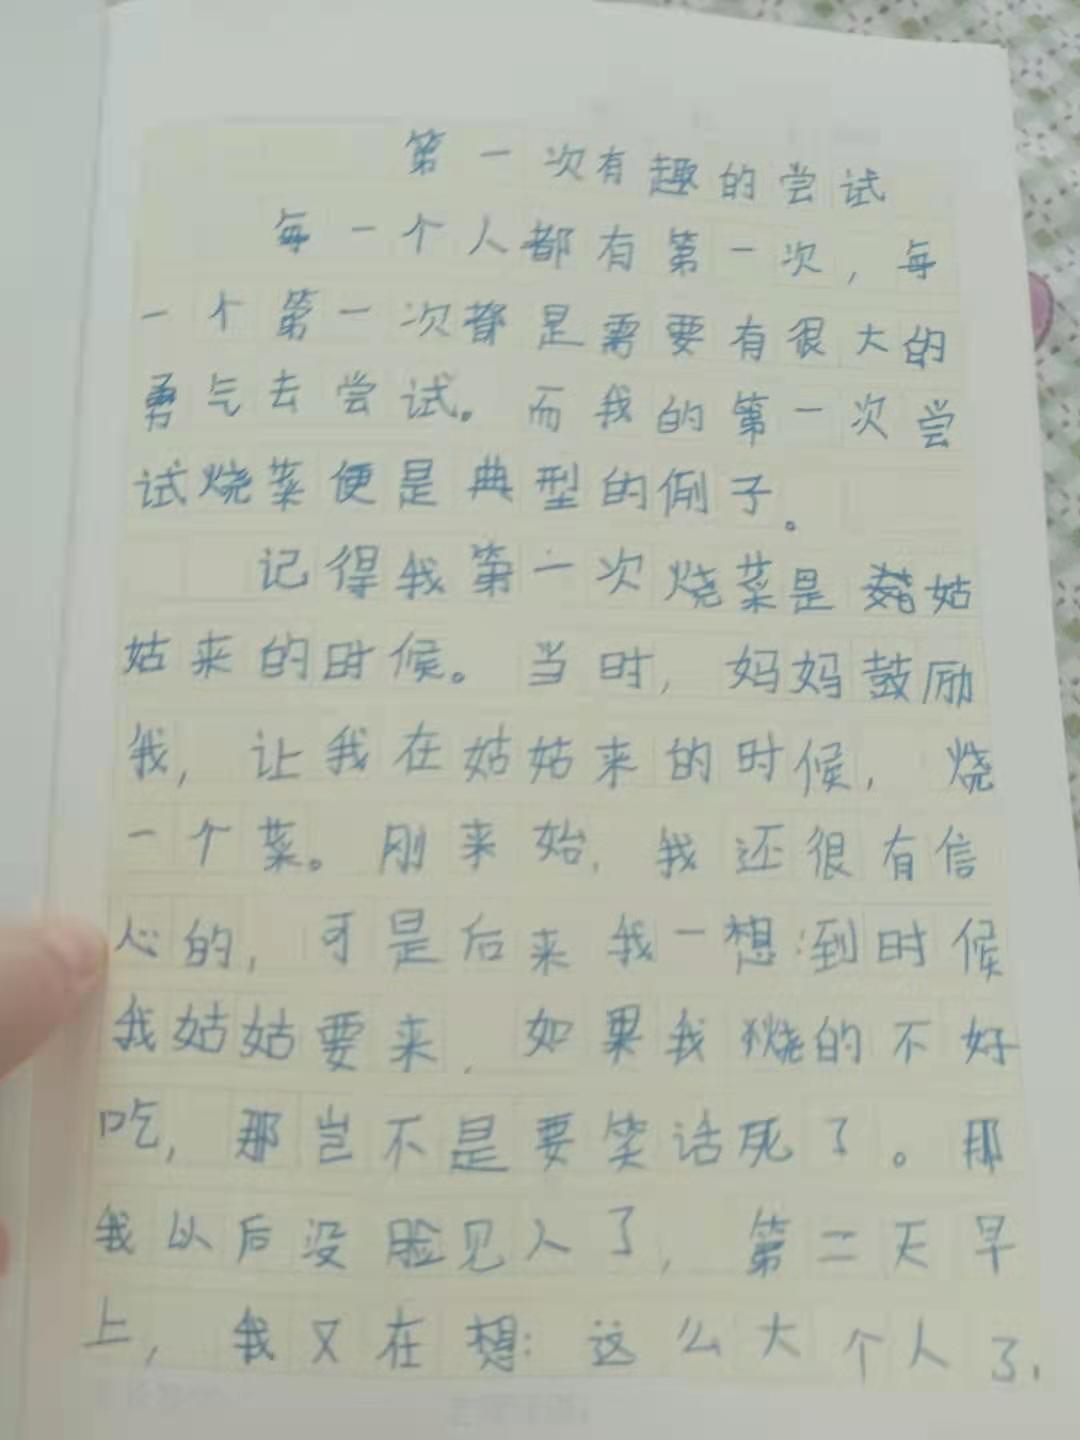 第一次有趣的尝试
每一个人都有第一次，每
一个第一次都是需要有很大的
勇气去尝试。而我的第一次尝
试烧菜便是典型的例子。
记得我第一次烧菜是姑
姑来的时候。当时，妈妈鼓励
我，让我在姑姑来的时候，烧
一个菜。刚来始，我还很有信
心的，可是后来我一想：到时候
我姑姑要来，如果我烧的不好
吃，那岂不是要笑话死了。那
我以后没脸见人了，第二天早
上，我又在想：这么大个人了，